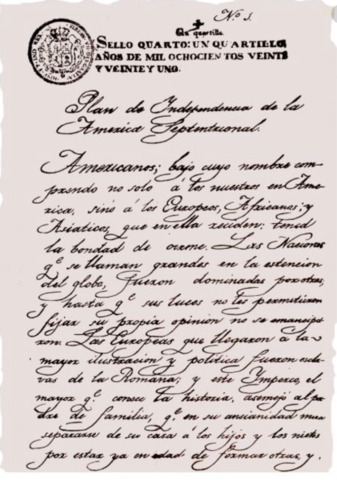 N.º 5.
Un quartillo
SELLO QUARTO: UN QUARTILLO,
AÑOS DE MIL OCHOCIENTOS VEINTE
Y VEINTE Y UNO.
Plan de Independencia de la
America Septentrional.
Americanos; bajo cuyo nombre com
prendo no solo á los nuestros en Ame
rica, sinó á los Europeos, Africanos; y
Asiaticos, que en ella reciden: tened
la bondad de oirme. Las Naciones
q.e se llaman grandes en la estencion
del globo, fueron dominadas por otras,
y hasta q.e sus luces no les permitieron
fijar su propia opinion no se emancipa
ron. Las Europeas que llegaron á la
mayor ilustracion y politica fueron escla
vas de la Romana; y este Imperio, el
mayor q.e conoce la historia, asemejó al pa
dre de familia, q.e en su ancianidad mira
separarse de su casa a los hijos y los nietos
por estar ya en edad de formar otras y.